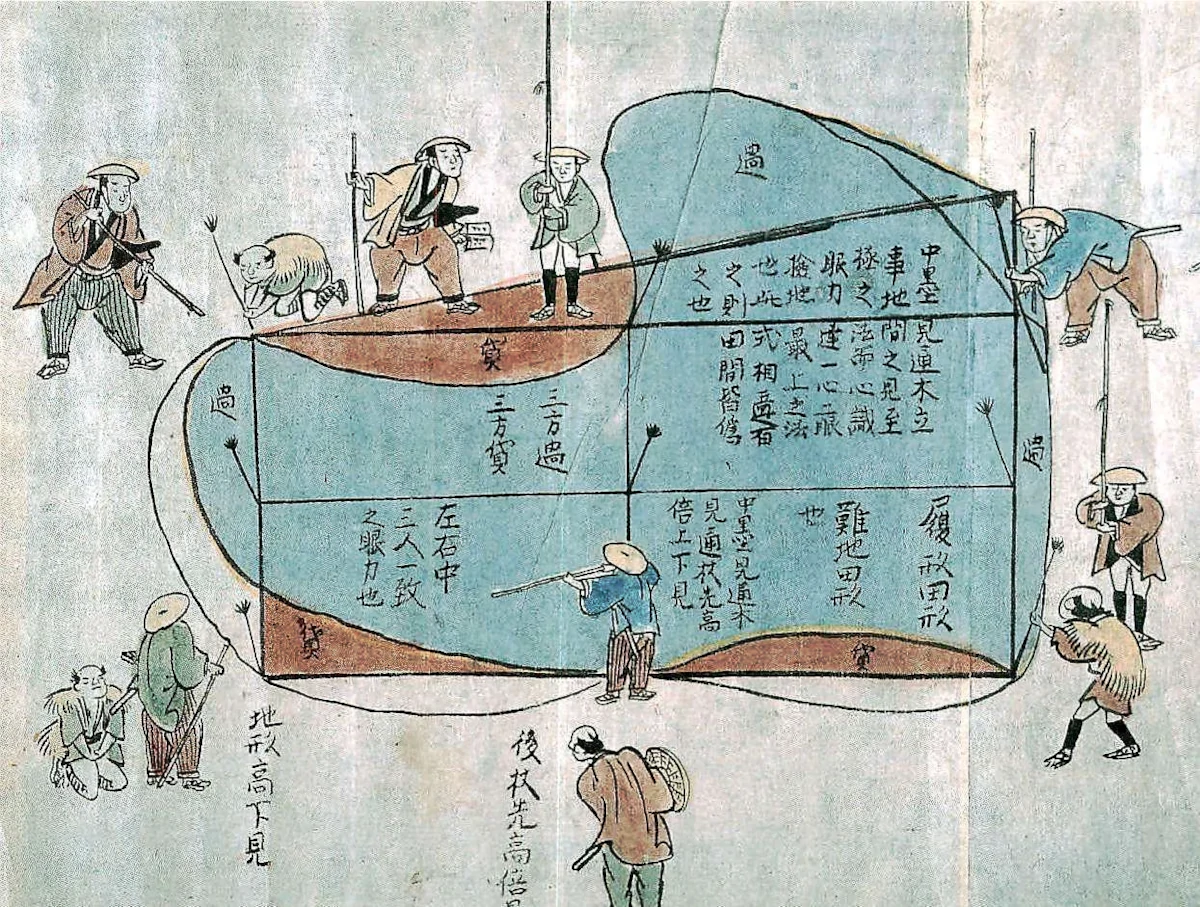 過
中墨見通木立
事地間之見至
極之法而心識
眼力達一心二眼
撿地最上之法
也此式相違有
之則田間皆偽
之也
貸
過
三方過
三方貸
過
履形田形
難地田形
也
中墨見通木
見通杖先高
倍上下見
左右中
三人一致
之眼力也
貸
貸
地形高下見
後杖先高倍見